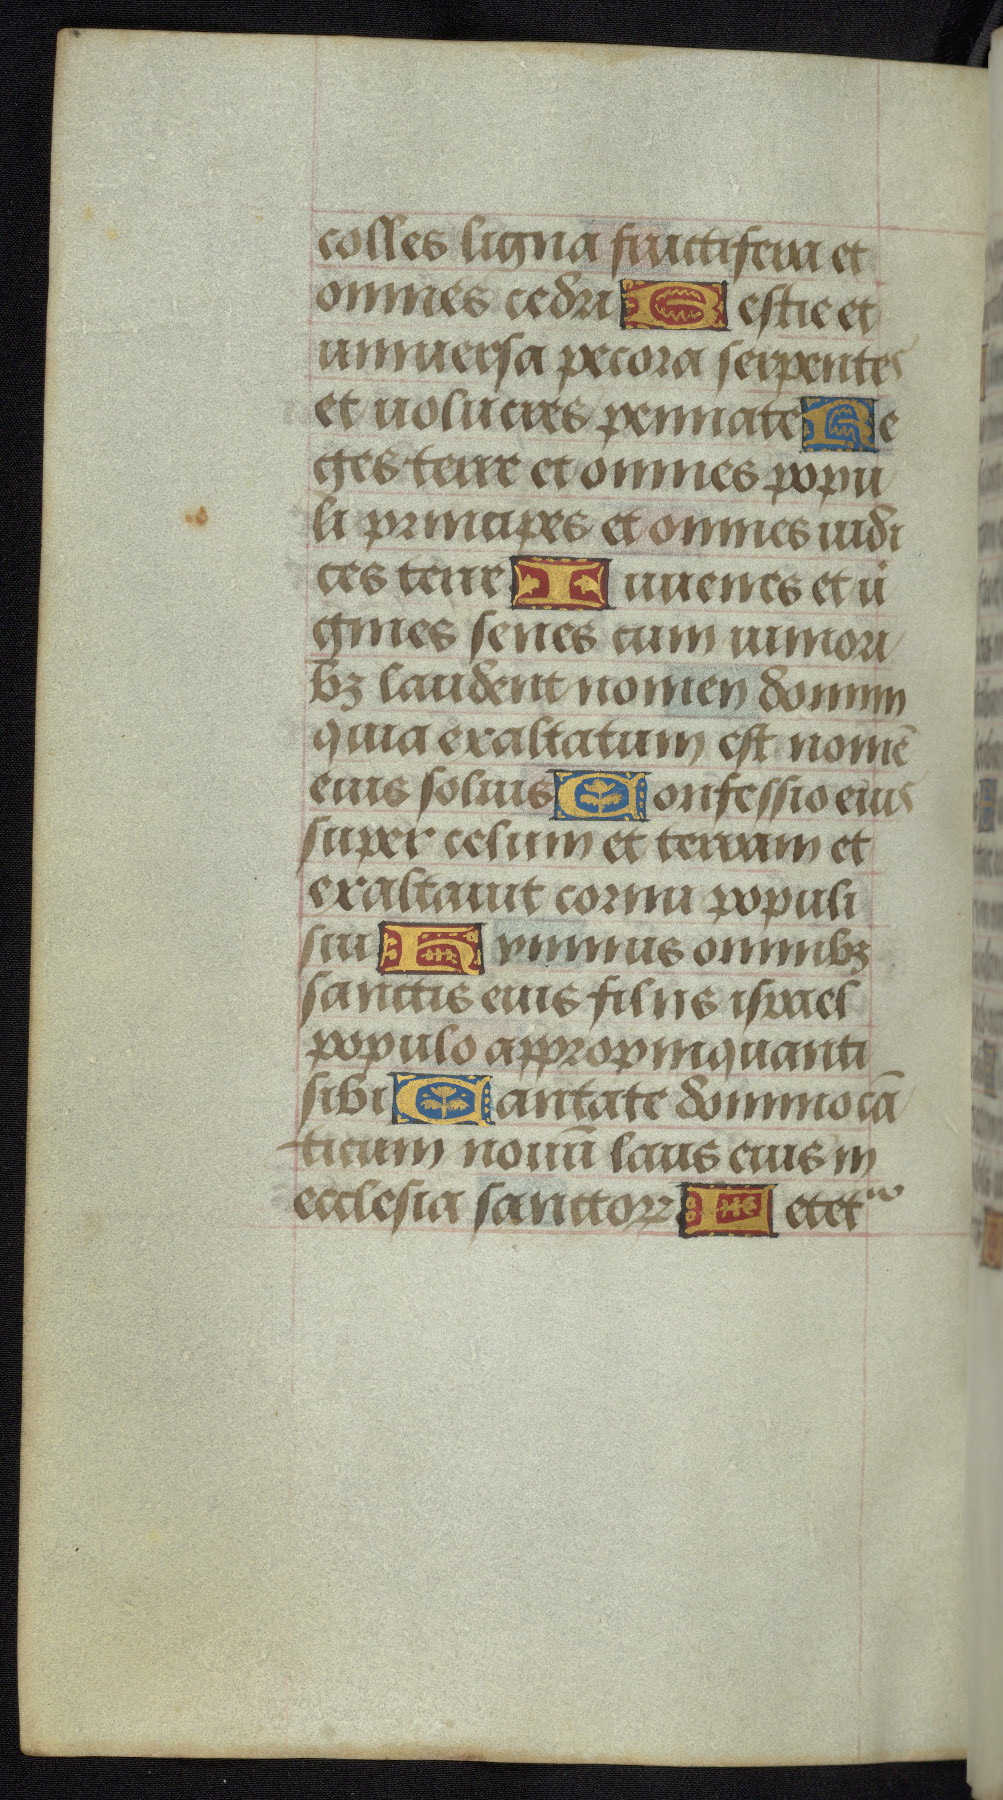 colles ligna fructifera et
omnes cedri Bestie et
uniuersa pecora serpentes
et uolucres pennate Re
ges terre et omnes popu
li principes et omnes iudi
ces terre Iuuenes et uͥ
gines senes cum iuniori
bꝫ laudent nomen domini
quia exaltatum est nomē
eius solius Confessio eius
super celum et terram et
exaltauit cornu populi
sui Hymnus omnibꝫ
sanctis eius filiis israel
populo appropinquanti
sibi Cantate domino cā
ticum nouū laus eius in
ecclesia sanctoꝝ Letetᵘʳ